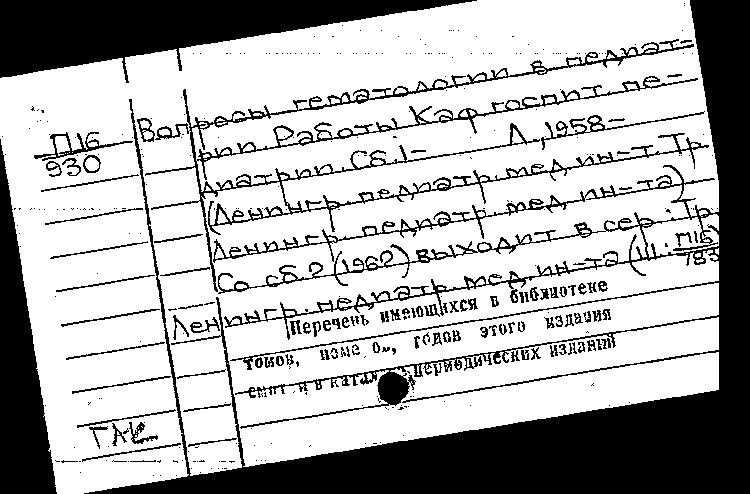 П16
930
Вопросы гематологии в педиат-
рии. Работы Каф госпит. пе-
диатрии. Сб. 1- Л., 1958-
(Ленингр. педиатр. мед. ин-т. Тр.
Ленингр. педиатр. мед. ин-та).
Со сб. 2 (1962) выходит в сер.: Тр.
Ленингр. педиатр. мед. ин-та (Ш: П16/783)
Перечень имеющихся в библиотеке
томов, номе ов, годов этого издания
смот и в катал периодических изданий